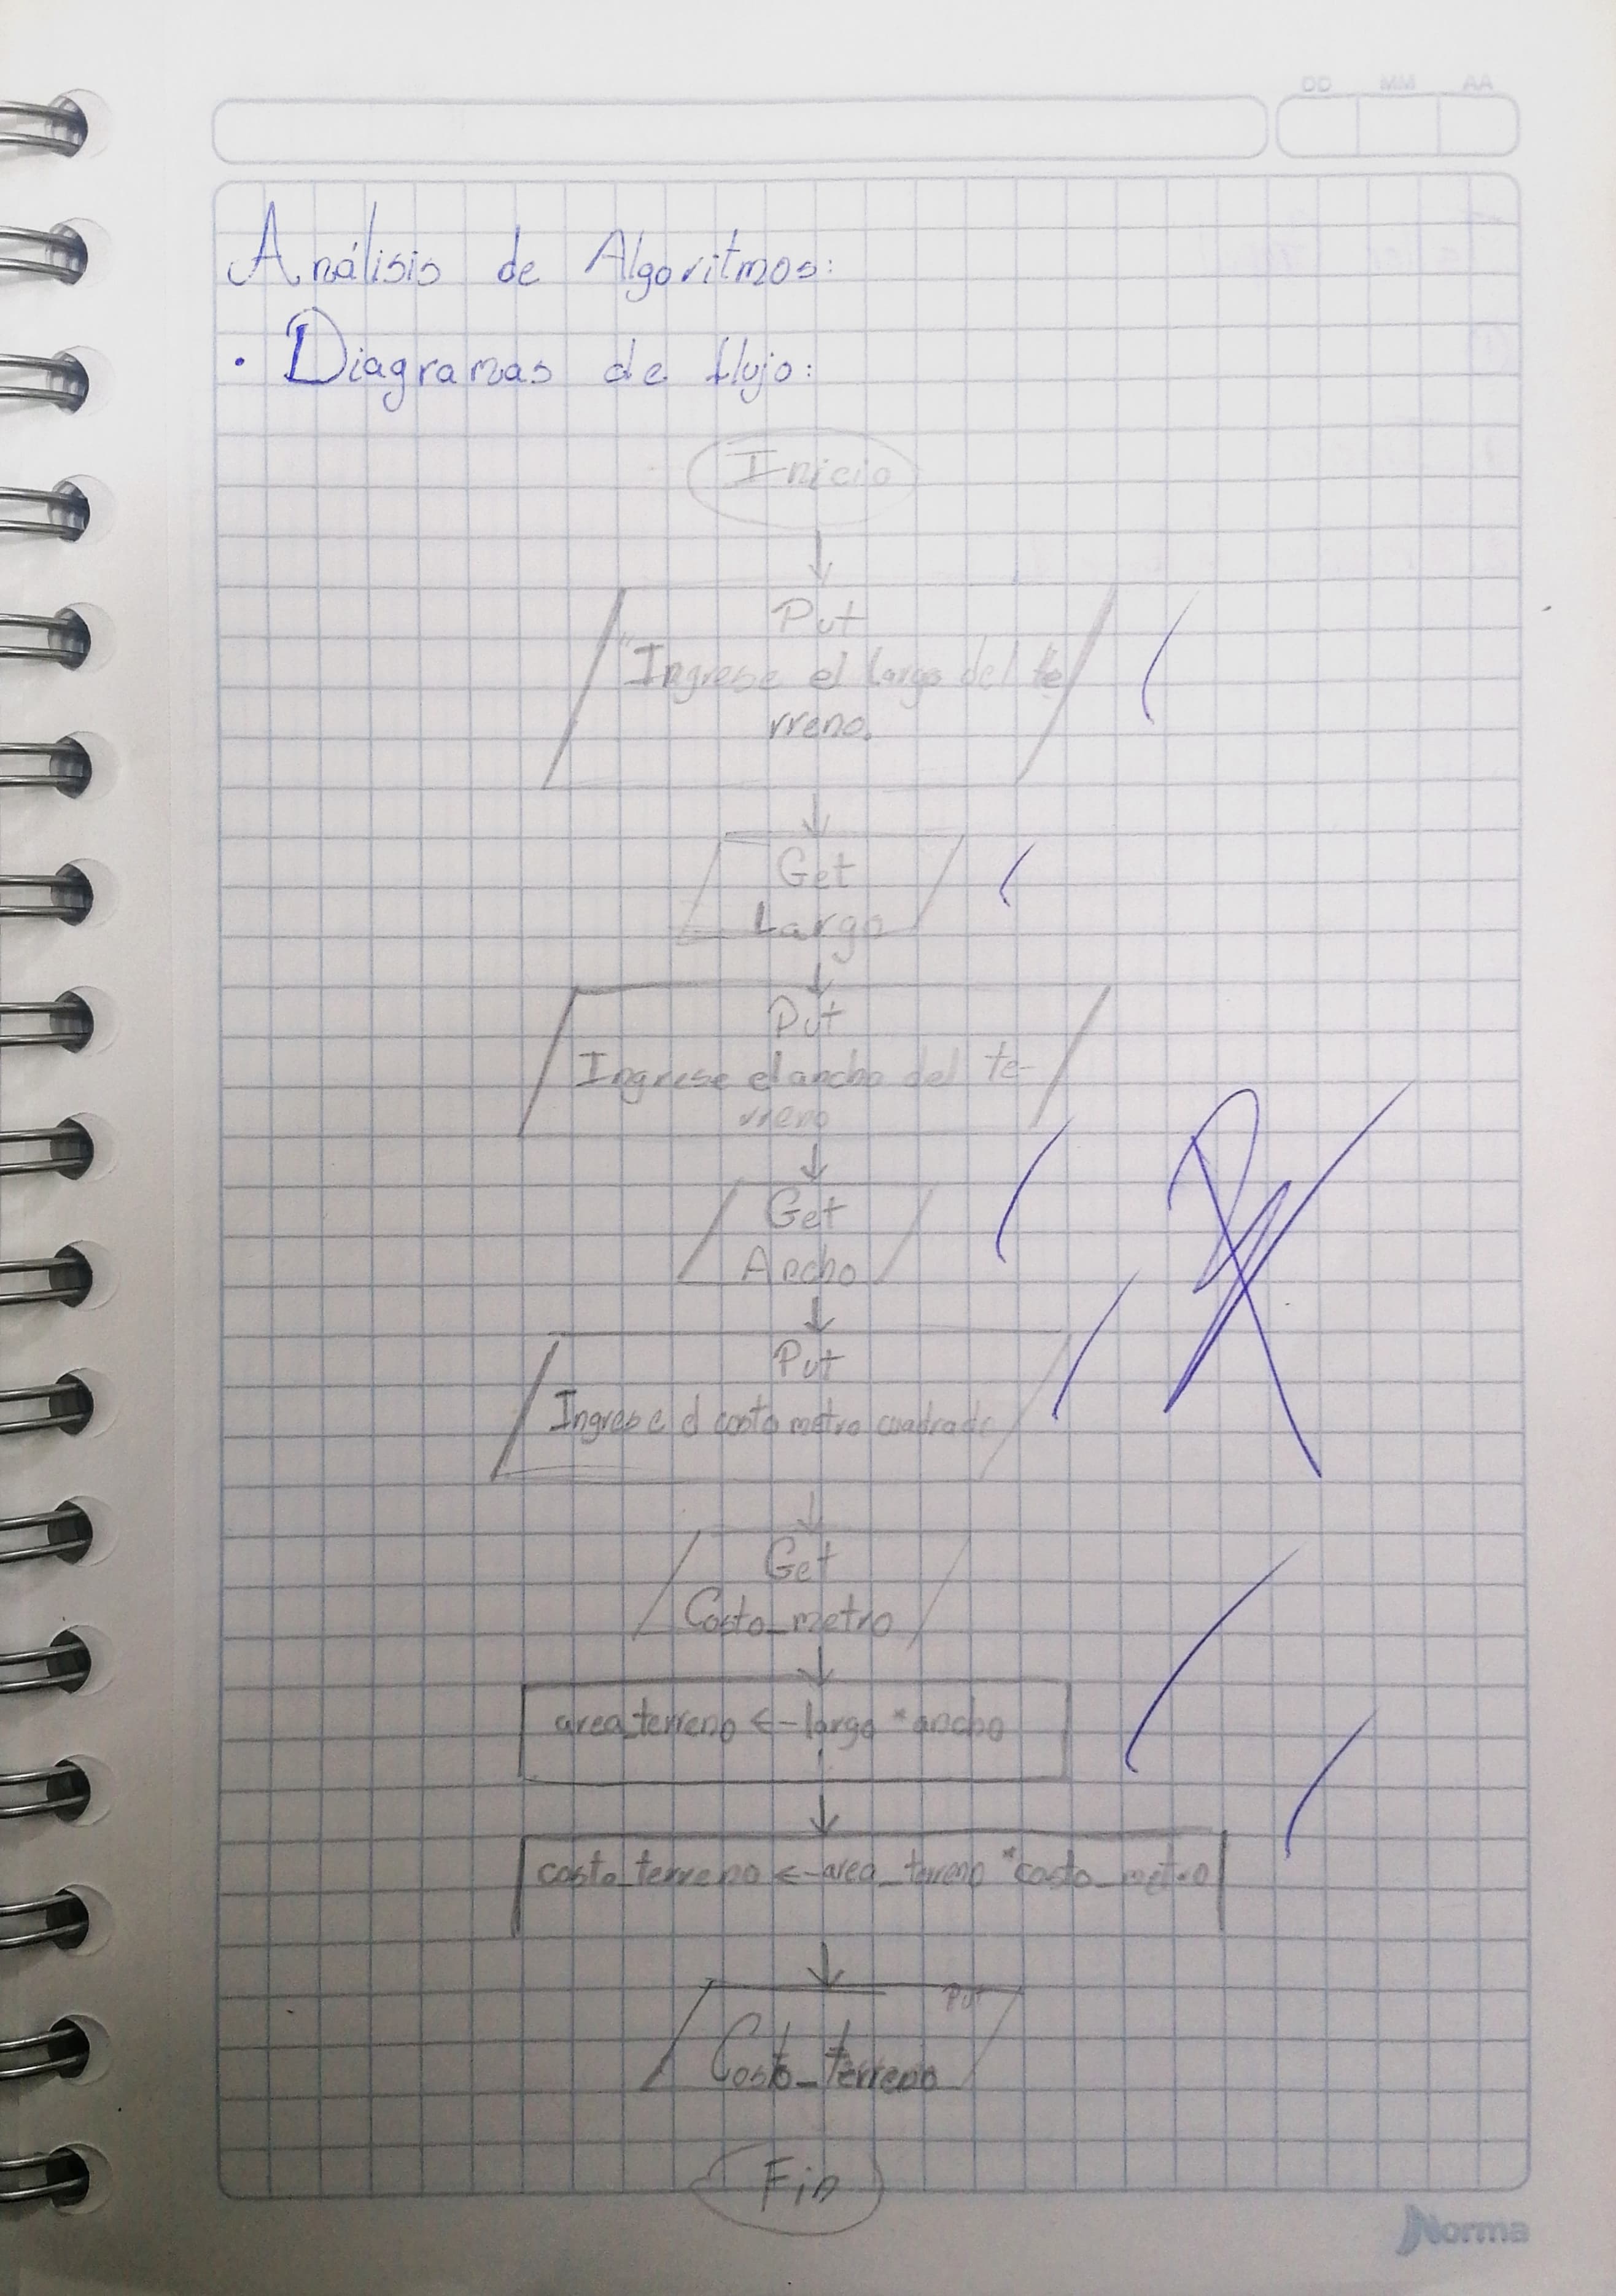 DD MM AA
Análisis de Algoritmos:
• Diagramas de flujo:
Inicio
Put
"Ingrese el largo del te
rreno.
Get
Largo
Put
Ingrese el ancho del te-
rreno
Get
Ancho
Put
Ingrese el costo metro cuadrado
Get
Costo_metro
area_terreno <- largo * ancho
costo_terreno <- area_terreno * costo_metro
Put
Costo_terreno
Fin
Norma